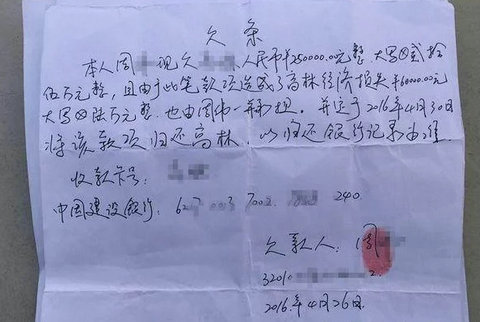 欠条
本人周 现欠 人民币¥250000.00元整 大写⊗贰拾
伍万元整,且由于此笔款项造成了高林经济损失¥60000.00元
大写⊗陆万元整.也由周中一并承担.并定于2016年4月30日
将该款项归还高林.以归还银行记录为准.
收款卡号:
中国建设银行: 627 003 7002 240
欠款人:周
32010 2.
2016.年4月26日.